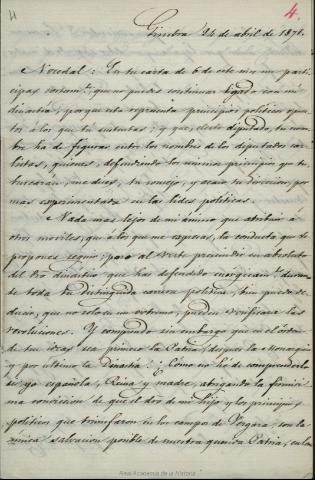 4.
Ginebra 24 de abril de 1871.
Nocedal: En tu carta de 6 de este mes me parti-
cipas que no puedes continuar ligado con mi
dinastia; porque esta representa principios politicos opues-
tos á los que tu sustentas; y que, electo diputado, tu nom-
bre ha de figurar entre los nombres de los diputados car-
listas, quienes, defendiendo los mismos principios que tu,
buscarán, me dices, tu consejo, y acaso tu direccion, por
mas esperimentado en las lides politicas.
Nada mas lejos de mi ánimo que atribuir á
otros moviles, que á los que me espresas, la conducta que te
propones seguir; pero al verte prescindir en absoluto
del dro dinastico que has defendido
toda tu distinguida carrera politica, bien puede
decir, que no solo en un estremo, pueden verificarse las
revoluciones. Y comprendo sin embargo que en el órden
de tus ideas sea primero la Patria, despues la Monarquia
y por último la Dinastia. ¡Cómo no he de comprenderlo
yo española, Reina y madre, abrigando la firmisi-
ma conviccion de que el dro de mi hijo y los principios
politicos que triunfaron en los campos de Vergara, son la
única salvacion posible de nuestra querida Patria, en la
Real Academia de la Historia